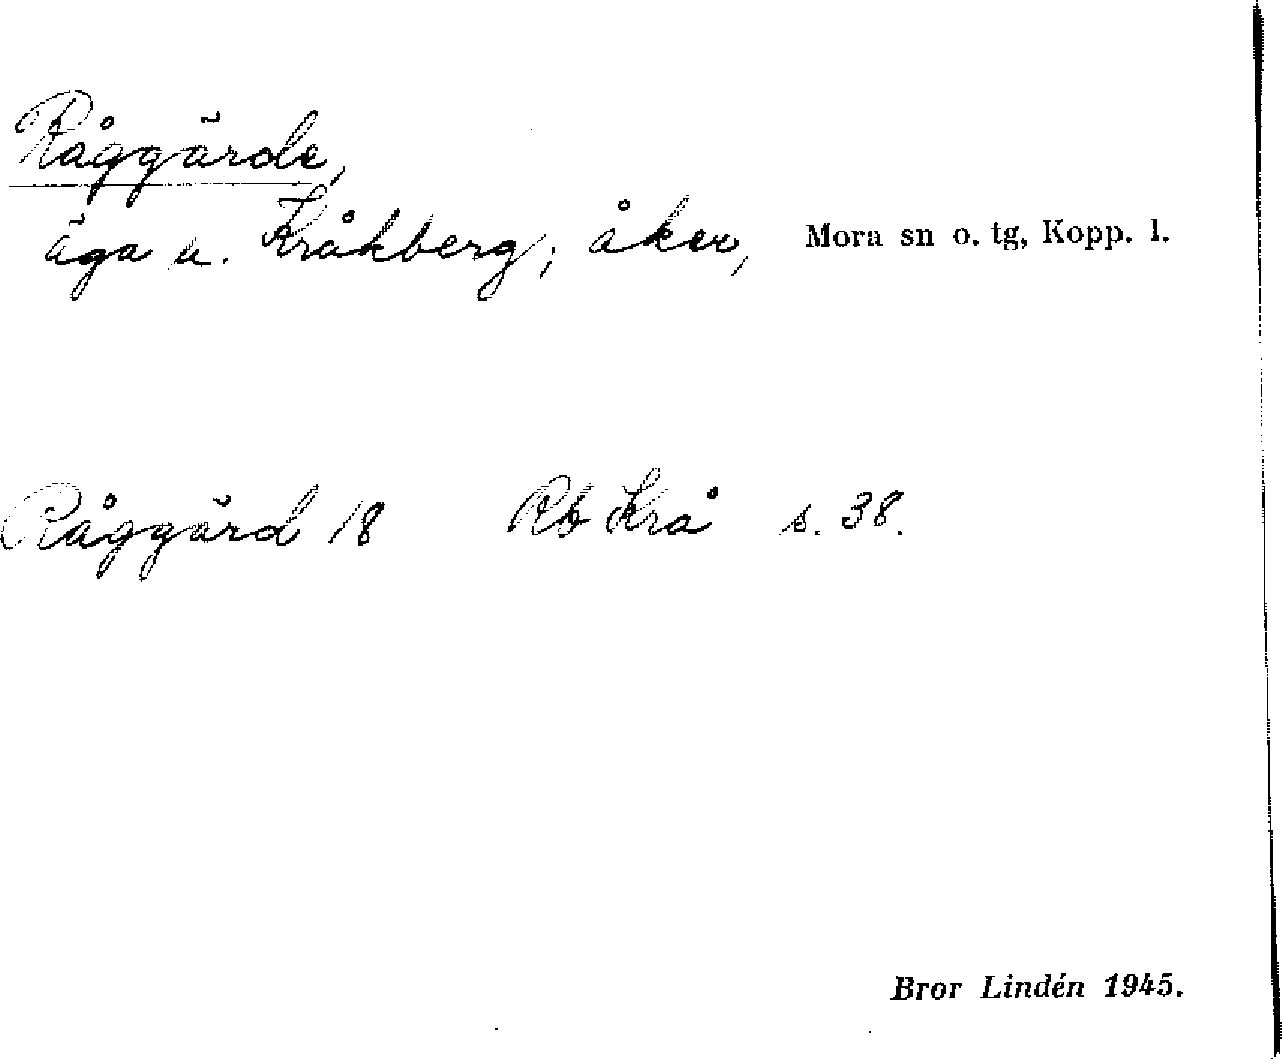 Råggärde,
äga u. Kråkberg; åker, Mora sn o. tg, Kopp. l.
Råggärd 18 Rb Krå s. 38.
Bror Lindén 1945.